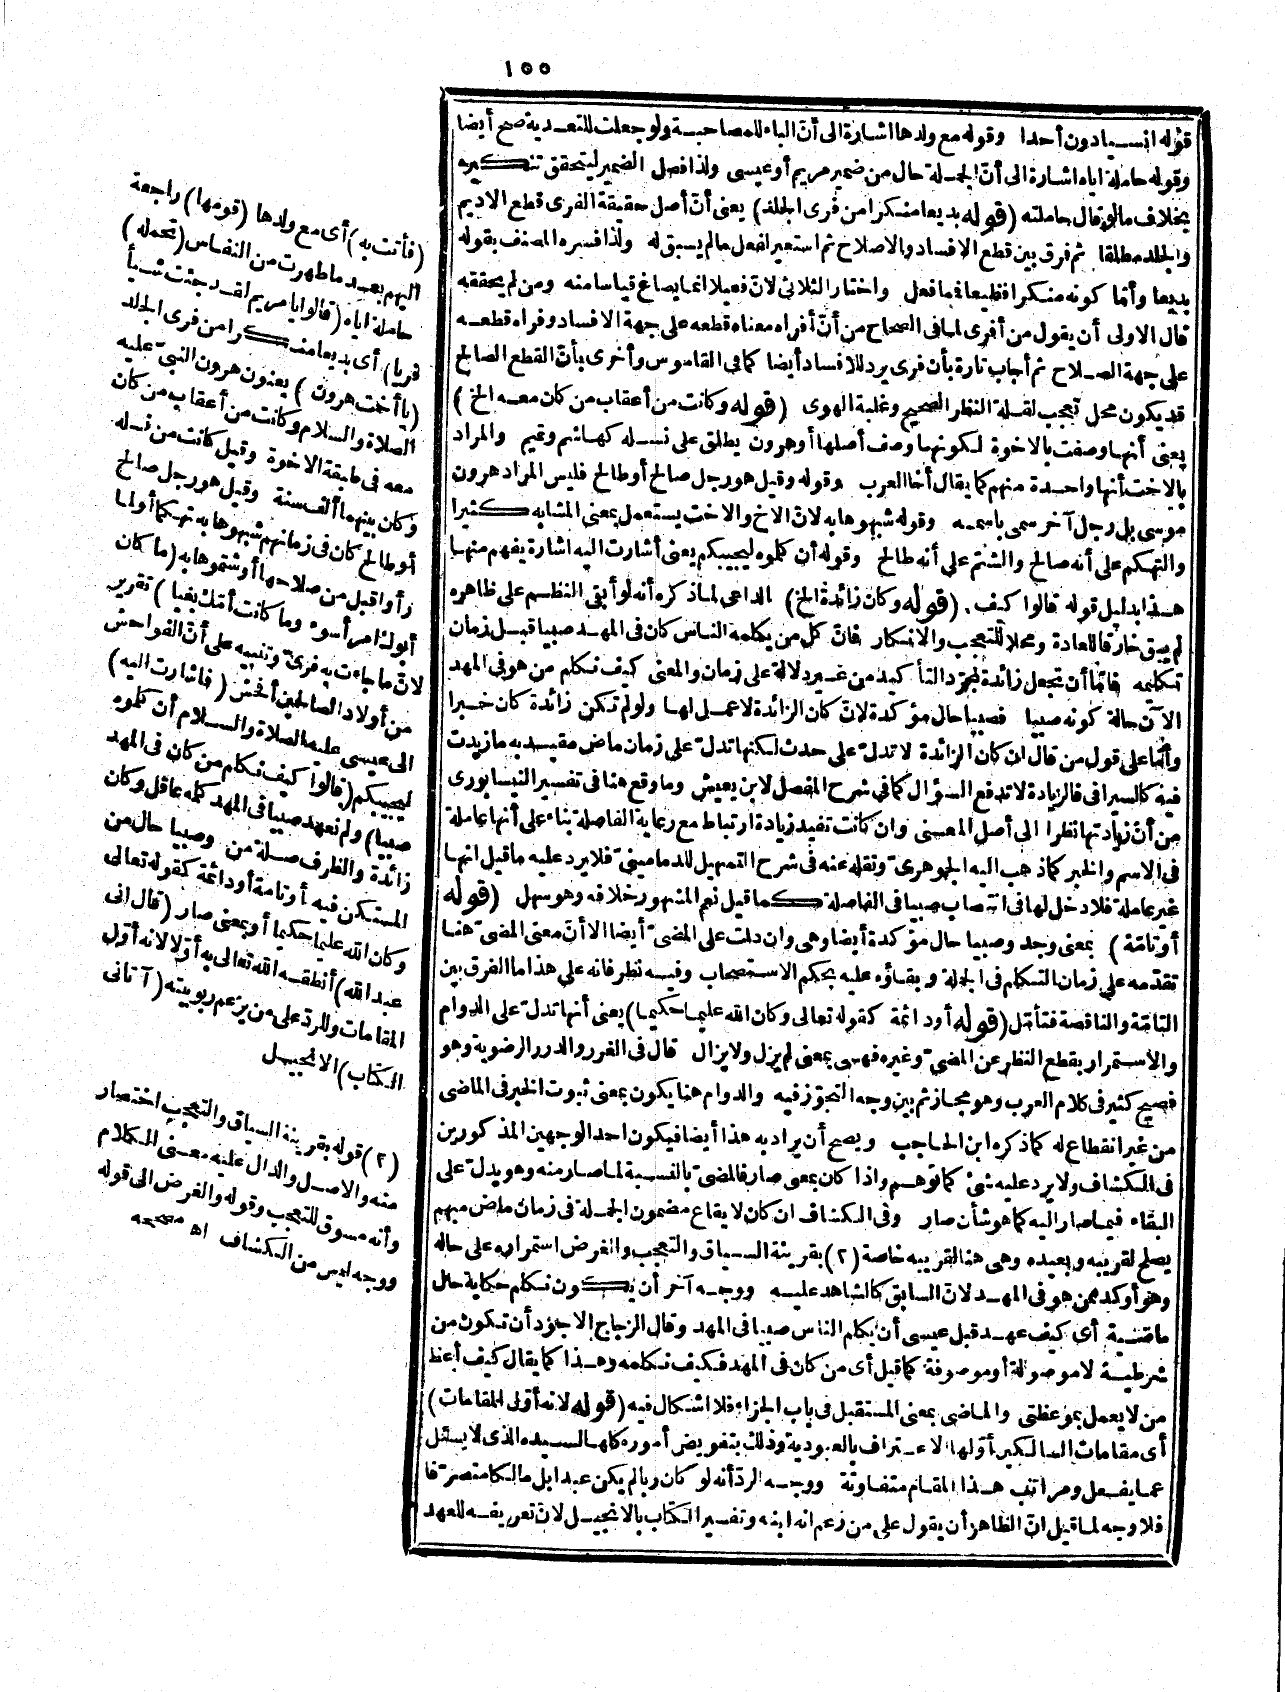 ١٥٥
قوله انسيا دون أحدا وقوله مع ولدها اشارة الى أنّ الباء للمصاحبة ولو جعلت للتعدية صح أيضا
وقوله حاملة اياه اشارة الى أنّ الجملة حال من ضمير مريم أو عيسى ولذا فصل الضمير ليتحقق تنكيره
بخلاف ما لو قال حاملته (قوله بديعا منكرا من فرى الجلد) يعنى أنّ أصل حقيقة الفرى قطع الاديم
والجلد مطلقا ثم فرق بين قطع الافساد والاصلاح ثم استعير لفعل ما لم يسبق له ولذا فسره المصنف بقوله
بديعا وأمّا كونه منكرا فظيعا فمافعل واختار الثلاثى لانّ فعيلا انما يصاغ قياسا منه ومن لم يحققه
قال الاولى أن يقول من أفرى لما فى الصحاح من أنّ أفراه معناه قطعه على جهة الافساد وفراه قطعه
على جهة الصلاح ثم أجاب تارة بأن فرى يرد للافساد أيضا كما فى القاموس وأخرى بأنّ القطع الصالح
قد يكون محل تعجب لقلة النظر الصحيح وغلبة الهوى (قوله وكانت من أعقاب من كان معه الخ)
يعنى أنها وصفت بالاخوة لكونها وصف أصلها أو هرون يطلق على نسله كهاشم وتميم والمراد
بالاخت أنها واحدة منهم كما يقال أخا العرب وقوله وقيل هو رجل صالح أو طالح فليس المراد هرون
موسى بل رجل آخر سمى باسمه وقوله شبهوها به لانّ الاخ والاخت يستعمل بمعنى المشابه كثيرا
والتهكم على أنه صالح والشتم على أنه طالح وقوله أن كلموه ليجيبكم يعنى أشارت اليه اشارة يفهم منها
هذا بدليل قوله قالوا كيف. (قوله وكان زائدة الخ) الداعى لما ذكره أنه لو أبقى النظم على ظاهره
لم يبق خارقا للعادة ومحلا للتعجب والانكار فانّ كل من يكلمه الناس كان فى المهد صبيا قبل زمان
تكليمه فامّا أن تجعل زائدة لمجرّد التأكيد من غير دلالة على زمان والمعنى كيف نكلم من هو فى المهد
الآن حالة كونه صبيا فصبيا حال مؤكدة لانّ كان الزائدة لا عمل لها ولو لم تكن زائدة كان خبرا
وأمّا على قول من قال ان كان الزائدة لا تدلّ على حدث لكنها تدلّ على زمان ماض مقيد به ما زيدت
فيه كالسيرافى فالزيادة لا تدفع السؤال كما فى شرح المفصل لابن يعيش وما وقع هنا فى تفسير النيسابورى
من أنّ زيادتها نظرا الى أصل المعنى وان كانت تفيد زيادة ارتباط مع رعاية الفاصلة بناء على أنها عاملة
فى الاسم والخبر كما ذهب اليه الجوهرىّ ونقله عنه فى شرح التسهيل للدمامينىّ فلا يرد عليه ما قيل انها
غير عاملة فلا دخل لها فى انتصاب صبيا فى الفاصلة كما قيل نعم المشهور خلافه وهو سهل (قوله
أو تامّة) بمعنى وجد وصبيا حال مؤكدة أيضا وهى وان دلت على المضىّ أيضا الا أنّ معنى المضىّ هنا
تقدّمه على زمان التكلم فى الجملة وبقاؤه عليه بحكم الاستصحاب وفيه نظر فانه على هذا ما الفرق بين
التامّة والناقصة فتأمّل (قوله أو دائمة كقوله تعالى وكان الله عليما حكيما) يعنى أنها تدلّ على الدوام
والاستمرار بقطع النظر عن المضىّ وغيره فهى بمعنى لم يزل ولا يزال قال فى الغرر والدرر الرضوية وهو
فصيح كثير فى كلام العرب وهو مجاز ثم بين وجه التجوّز فيه والدوام هنا يكون بمعنى ثبوت الخبر فى الماضى
من غير انقطاع له كما ذكره ابن الحاجب ويصح أن يراد به هذا أيضا فيكون احد الوجهين المذكورين
فى الكشاف ولا يرد عليه شئ كما توهم واذا كان بمعنى صار فالمضىّ بالنسبة لما صار منه وهو يدلّ على
البقاء فيما صار اليه كما هو شأن صار وفى الكشاف ان كان لايقاع مضمون الجملة فى زمان ماض مبهم
يصلح لقريبه وبعيده وهى هنا لقريبه خاصة (٢) بقرينة السياق والتعجب والغرض استمراره على حاله
وهو أوكد ممن هو فى المهد لانّ السابق كالشاهد عليه ووجه آخر أن يكون نكلم حكاية حال
ماضية أى كيف عهد قبل عيسى أن يكلم الناس صبيا فى المهد وقال الزجاج الاجود أن تكون من
شرطية لا موصولة أو موصوفة كما قيل أى من كان فى المهد فكيف نكلمه وهذا كما يقال كيف أعظ
من لا يعمل بموعظتى والماضى بمعنى المستقبل فى باب الجزاء فلا اشكال فيه (قوله لانه أوّل المقامات)
أى مقامات السالكين أوّلها الاعتراف بالعبودية وذلك بتفويض أموره كلها لسيده الذى لا يسئل
عما يفعل ومراتب هذا المقام متفاوتة ووجه الردّ أنه لو كان ربا لم يكن عبدا بل مالكا متصرّفا
فلا وجه لما قيل انّ الظاهر أن يقول على من زعم انه ابنه وتفسير الكتاب بالانجيل لانّ تعريفه للعهد
(فأتت به) أى مع ولدها (قومها) راجعة
اليهم بعد ما طهرت من النفاس (تحمله)
حاملة اياه (قالوا يا مريم لقد جئت شيأ
فريا) أى بديعا منكرا من فرى الجلد
(يا أخت هرون) يعنون هرون النبىّ عليه
الصلاة والسلام وكانت من أعقاب من كان
معه فى طبقة الاخوة وقيل كانت من نسله
وكان بينهما ألف سنة وقيل هو رجل صالح
أو طالح كان فى زمانهم شبهوها به تهكما أو لما
رأوا قبل من صلاحها أو شتموها به (ما كان
أبوك امرأ سوء وما كانت أمّك بغيا) تقرير
لانّ ما جاءت به فرىّ وتنبيه على أنّ الفواحش
من أولاد الصالحين أفحش (فأشارت اليه)
الى عيسى عليه الصلاة والسلام أن كلموه
ليجيبكم (قالوا كيف نكلم من كان فى المهد
صبيا) ولم نعهد صبيا فى المهد كلمه عاقل وكان
زائدة والظرف صلة من وصبيا حال من
المستكن فيه أو تامة أو دائمة كقوله تعالى
وكان الله عليما حكيما أو بمعنى صار (قال انى
عبد الله) أنطقه الله تعالى به أوّلا لانه أوّل
المقامات وللردّ على من يزعم ربوبيته (آتانى
الكتاب) الانجيل
(٢) قوله بقرينة السياق والتعجب اختصار
منه والاصل والدال عليه معنى الكلام
وأنه مسوق للتعجب وقوله والغرض الى قوله
ووجه ليس من الكشاف اه مصححه